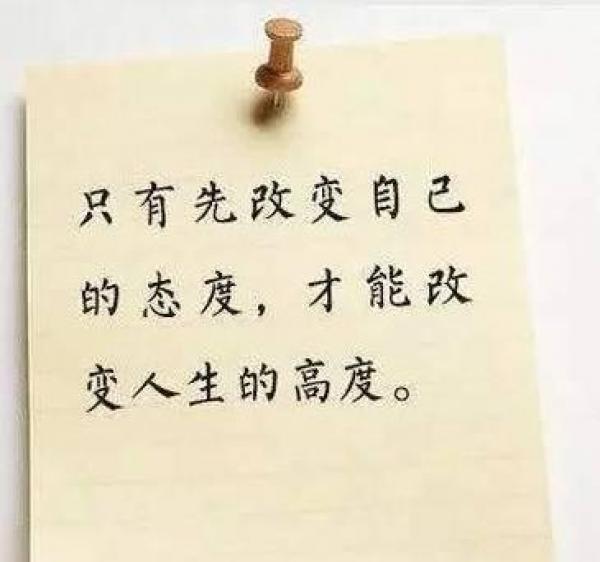 只有先改变自己
的态度，才能改
变人生的高度。